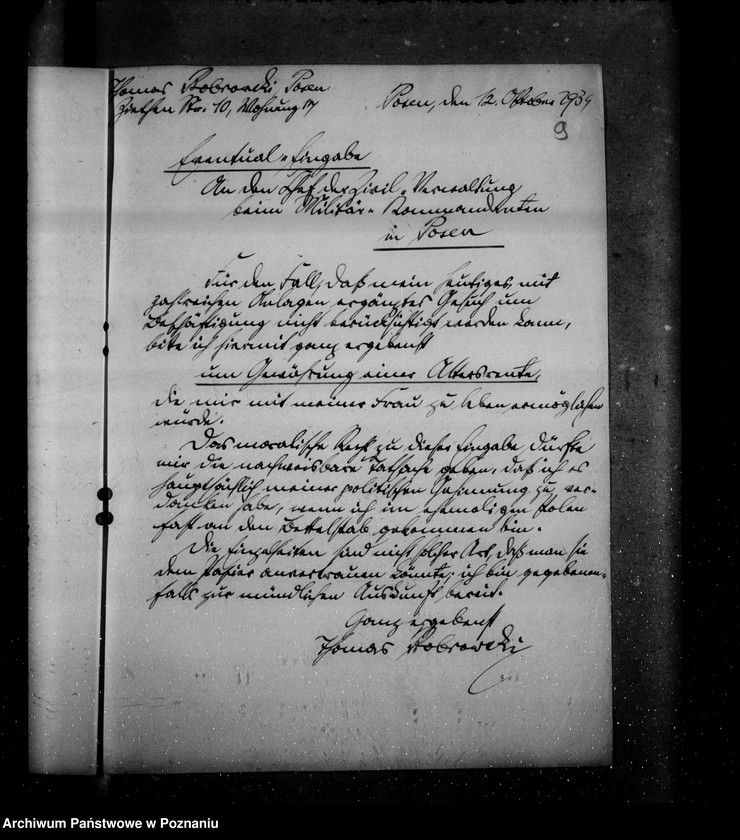 Thomas Bobrowski, Posen
Ziethen Str. 10, Wohnung 17
Posen, den 12. Oktober 1939
9
Eventual-Eingabe
An den Chef der Zivil-Verwaltung
beim Militär-Kommandanten
in Posen
Für den Fall, daß mein heutiges, mit
zahlreichen Anlagen ergänztes Gesuch um
Beschäftigung nicht berücksichtigt werden kann,
bitte ich hiermit ganz ergebenst
um Gewährung einer Altersrente,
die mir mit meiner Frau zu leben ermöglichen
würde.
Das moralische Recht zu dieser Eingabe dürfte
mir die nachweisbare Tatsache geben, daß ich es
hauptsächlich meiner politischen Gesinnung zu ver-
danken habe, wenn ich im ehemaligen Polen
fast an den Bettelstab gekommen bin.
Die Einzelheiten sind nicht solcher Art, daß man sie
dem Papier anvertrauen könnte; ich bin gegebenen-
falls zur mündlichen Auskunft bereit.
Ganz ergebenst
Thomas Bobrowski
Archiwum Państwowe w Poznaniu